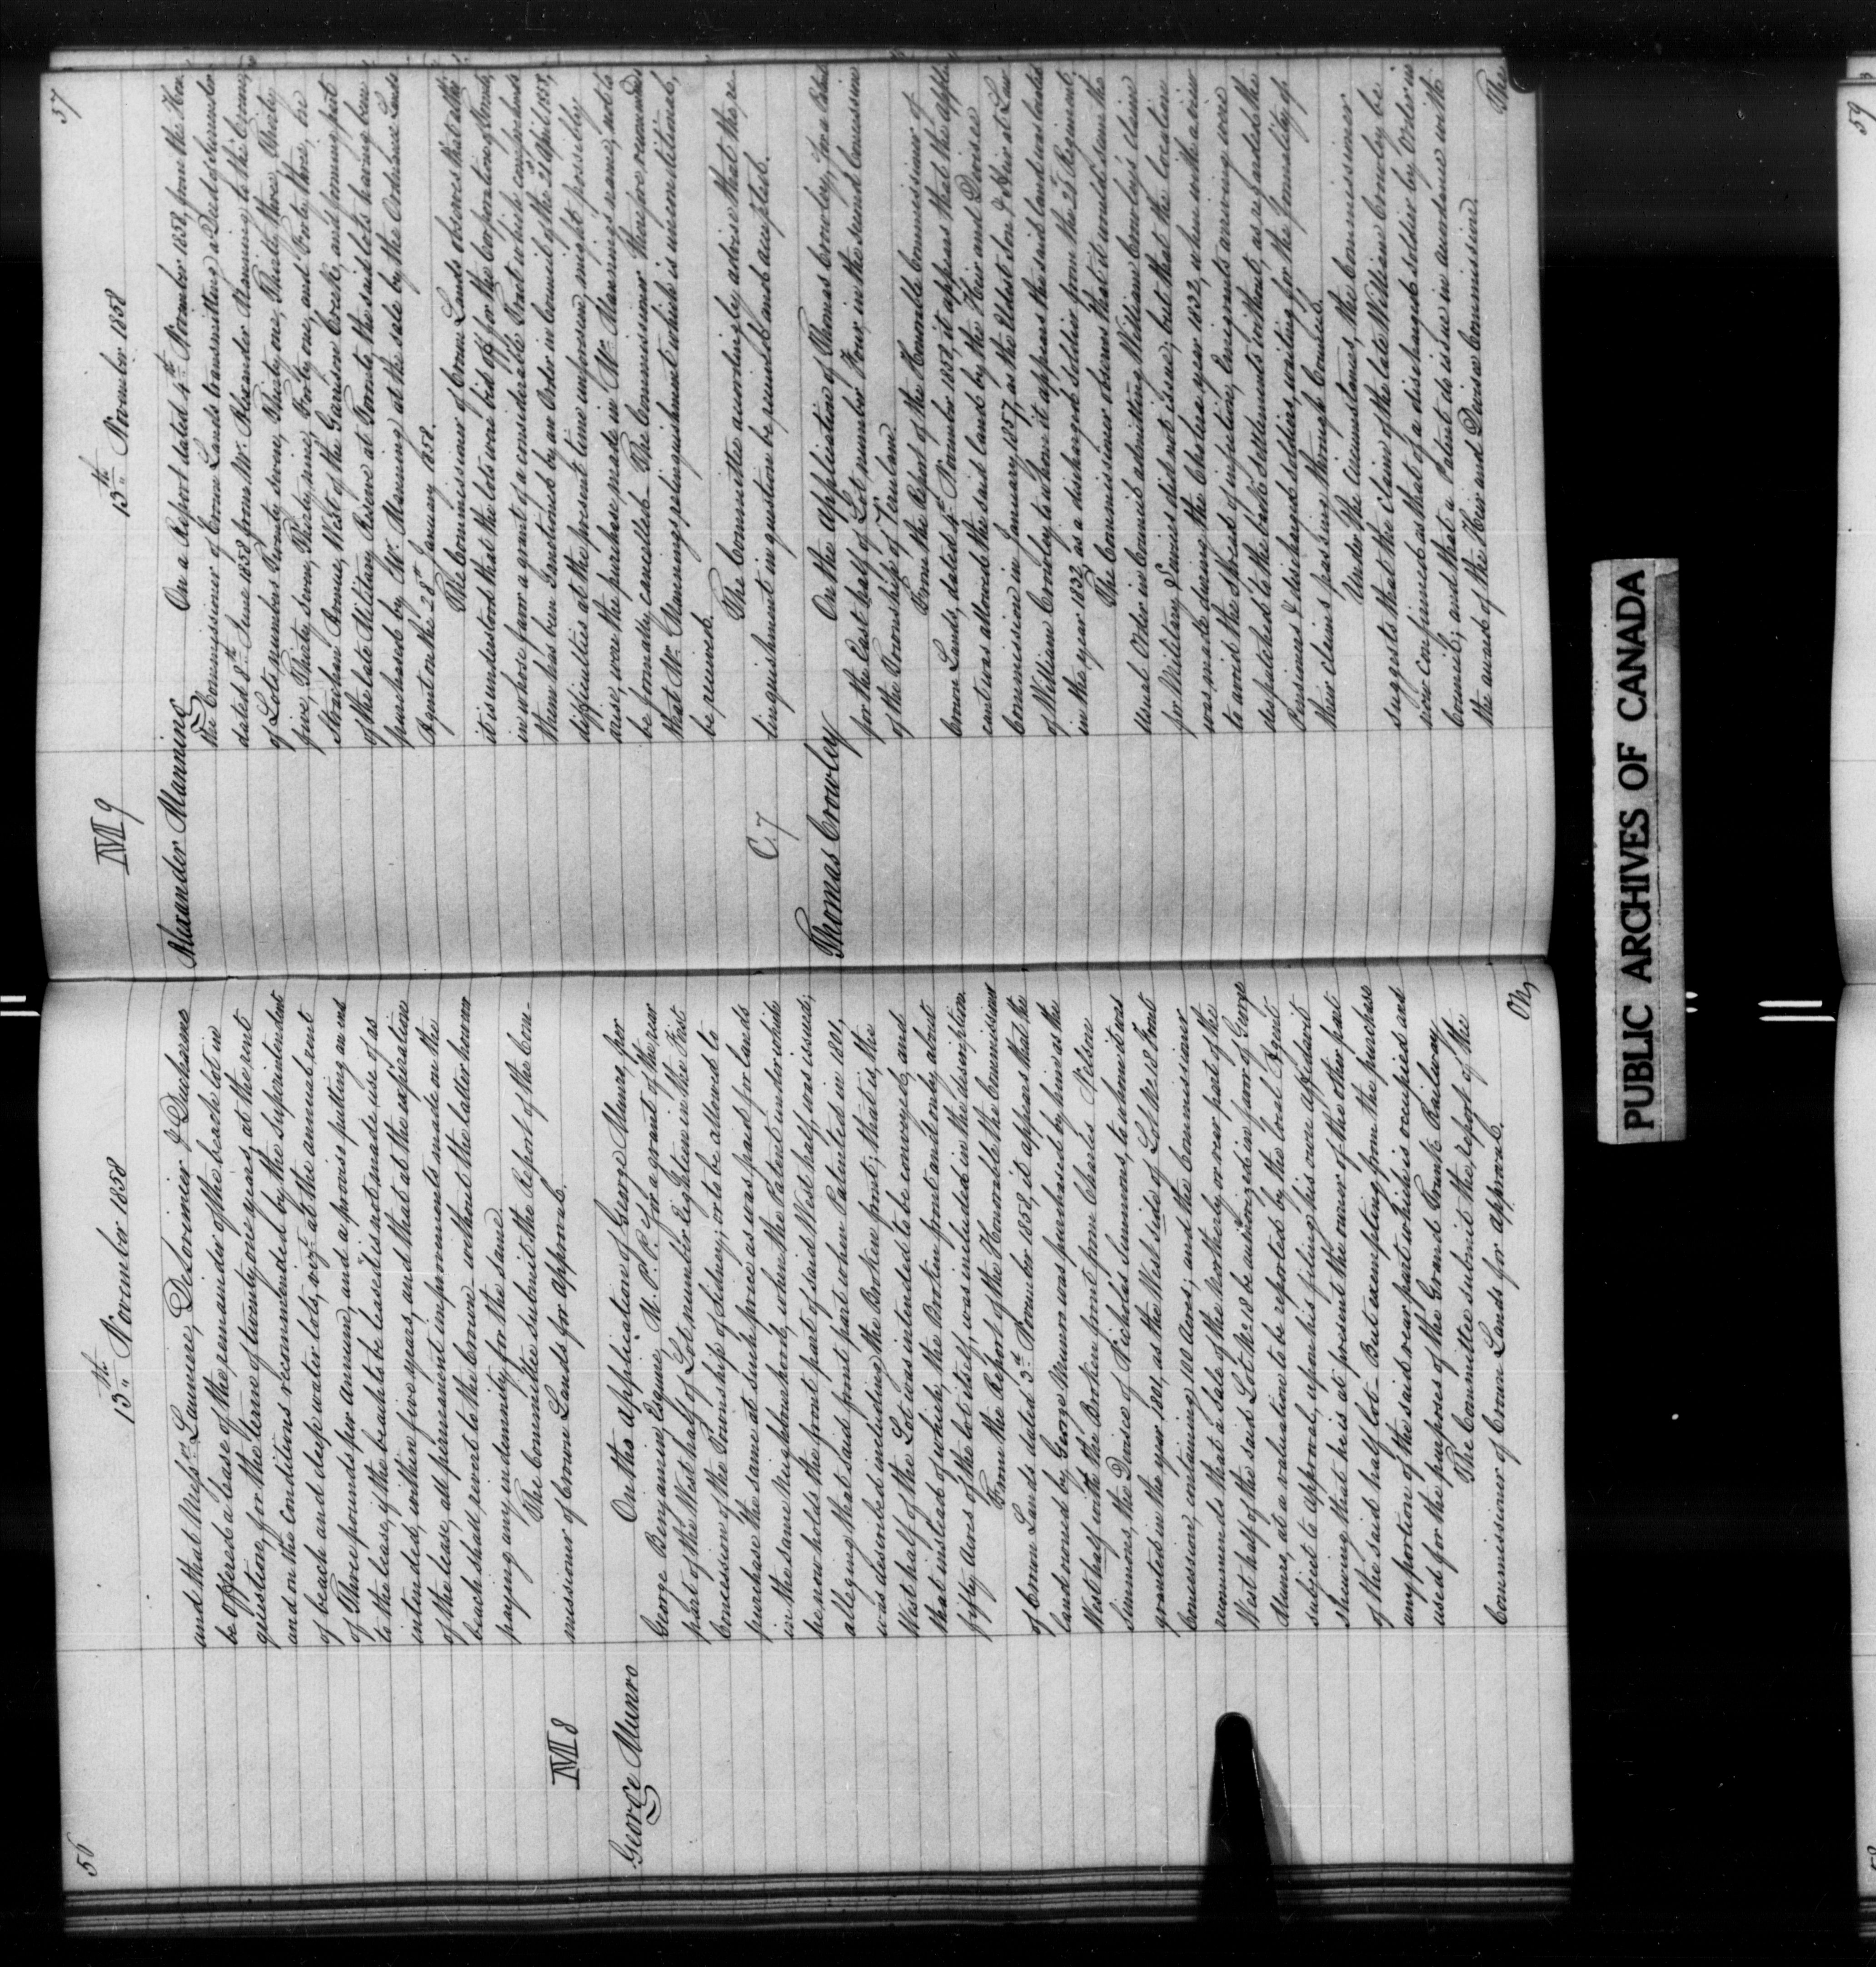 56
13th November 1858
and that Messrs Lamere, DeLorimier & Ducharme
be offered a lease of the remainder of the beach lot in
question, for the term of twenty one years, at the rent
and on the conditions recommended by the Superintendent
of beach and deep water lots, vizt at the annual rent
of Three pounds per annum, and a proviso putting an end
to the lease, if the beach to be leased is not made use of as
intended, within five years, and that at the expiration
of the lease, all permanent improvements made on the
beach shall revert to the Crown without the latter however
paying any indemnity for the same.
The Committee submit the Report of the Com-
missioner of Crown Lands for approval.
M 8
George Munro
On the application of George Munro, for
George Benjamin, Esquire M. P. P. for a grant of the rear
part of the West half of Lot number Eighteen in the First
Concession of the Township of Sidney; or to be allowed to
purchase the same at such price as was paid for lands
in the same Neighbourhood, when the Patent under which
he now holds the front part of said West half, was issued;
alleging that said front part when Patented in 1801,
was described including the Broken front; that is, the
West half of the Lot was intended to be conveyed, and
that instead of which, the Broken front and only about
fifty Acres of the lot itself, was included in the description.
From the Report of the Honorable the Commissioner
of Crown Lands dated 3rd November 1858, it appears that the
land owned by George Munro was purchased by him as the
West half with the Broken front from Charles Nelson
Simmons, the Devisee of Nicholas Simmons, to whom it was
granted in the year 1801, as the West side of Lot No 18 Front
Concession, containing 100 Acres; and the Commissioner
recommends that a sale of the Northerly or rear part of the
West half of the said Lot No 18 be authorized in favor of George
Munro, at a valuation to be reported by the local Agent
subject to approval, upon his filing his own affidavit
shewing that he is at present the owner of the other part
of the said half lot - But exempting from the purchase
any portion of the said rear part which is occupied and
used for the purposes of the Grand Trunk Railway
The Committee submit the report of the
Commissioner of Crown Lands for approval.
On
57
13th November 1858
M 9
Alexander Manning
On a Report dated 4th November 1858, from the Hon.
the Commissioner of Crown Lands transmitting a Deed of surrender
dated 8th June 1858 from Mr. Alexander Manning to the Crown,
of Lots numbers Twenty seven, Thirty one, Thirty three, Thirty
five, Thirty seven, Thirty nine, Forty one, and Forty three, on
Strachan Avenue, West of the Garrison Creek, and forming part
of the late Military Reserve at Toronto, the said lots having been
purchased by Mr. Manning at the sale by the Ordnance Lands
Agent on the 28th January 1858.
The Commissioner of Crown Lands observes that altho'
it is understood that the lots were bid off for the Corporation of Trinity,
in whose favor a grant of a considerable tract which comprehends
them has been sanctioned by an Order in Council of the 2d April 1858,
difficulties at the present time unforeseen might possibly
arise, were the purchase made in Mr. Manning's name, not to
be formally cancelled. The Commissioner therefore recommends
that Mr. Manning's relinquishment which is unconditional,
be received.
The Committee accordingly advise that the re-
linquishment in question be received and accepted.
C. 7
Thomas Crowley
On the application of Thomas Crowley, for a Patent
for the East half of Lot number Four, in the second Concession
of the Township of Verulam
From the Report of the Honorable Commissioner of
Crown Lands, dated 4th November 1858, it appears that the appli-
cant was allowed the said land by the Heir and Devisee
Commission in January 1857, as the Eldest Son, & Heir at Law
of William Crowley to whom it appears the said land was located
in the year 1832, as a discharged soldier from the 23d Regiment.
The Commissioner observes that it would seem the
usual Order in Council admitting William Crowley's claim
for Military Services did not issue; but that the location
was made during the Cholera year 1832, when with a view
to avoid the spread of infection, Emigrants arriving were
despatched to the back Settlements without as regarded the
Pensioners & discharged soldiers, waiting for the formality of
their claims passing through Council.
Under the circumstances, the Commissioner
suggests that the claim of the late William Crowley be
now confirmed as that of a discharged soldier by Order in
Council; and that a Patent do issue in accordance with
the award of the Heir and Devisee Commission.
The
PUBLIC ARCHIVES OF CANADA
59